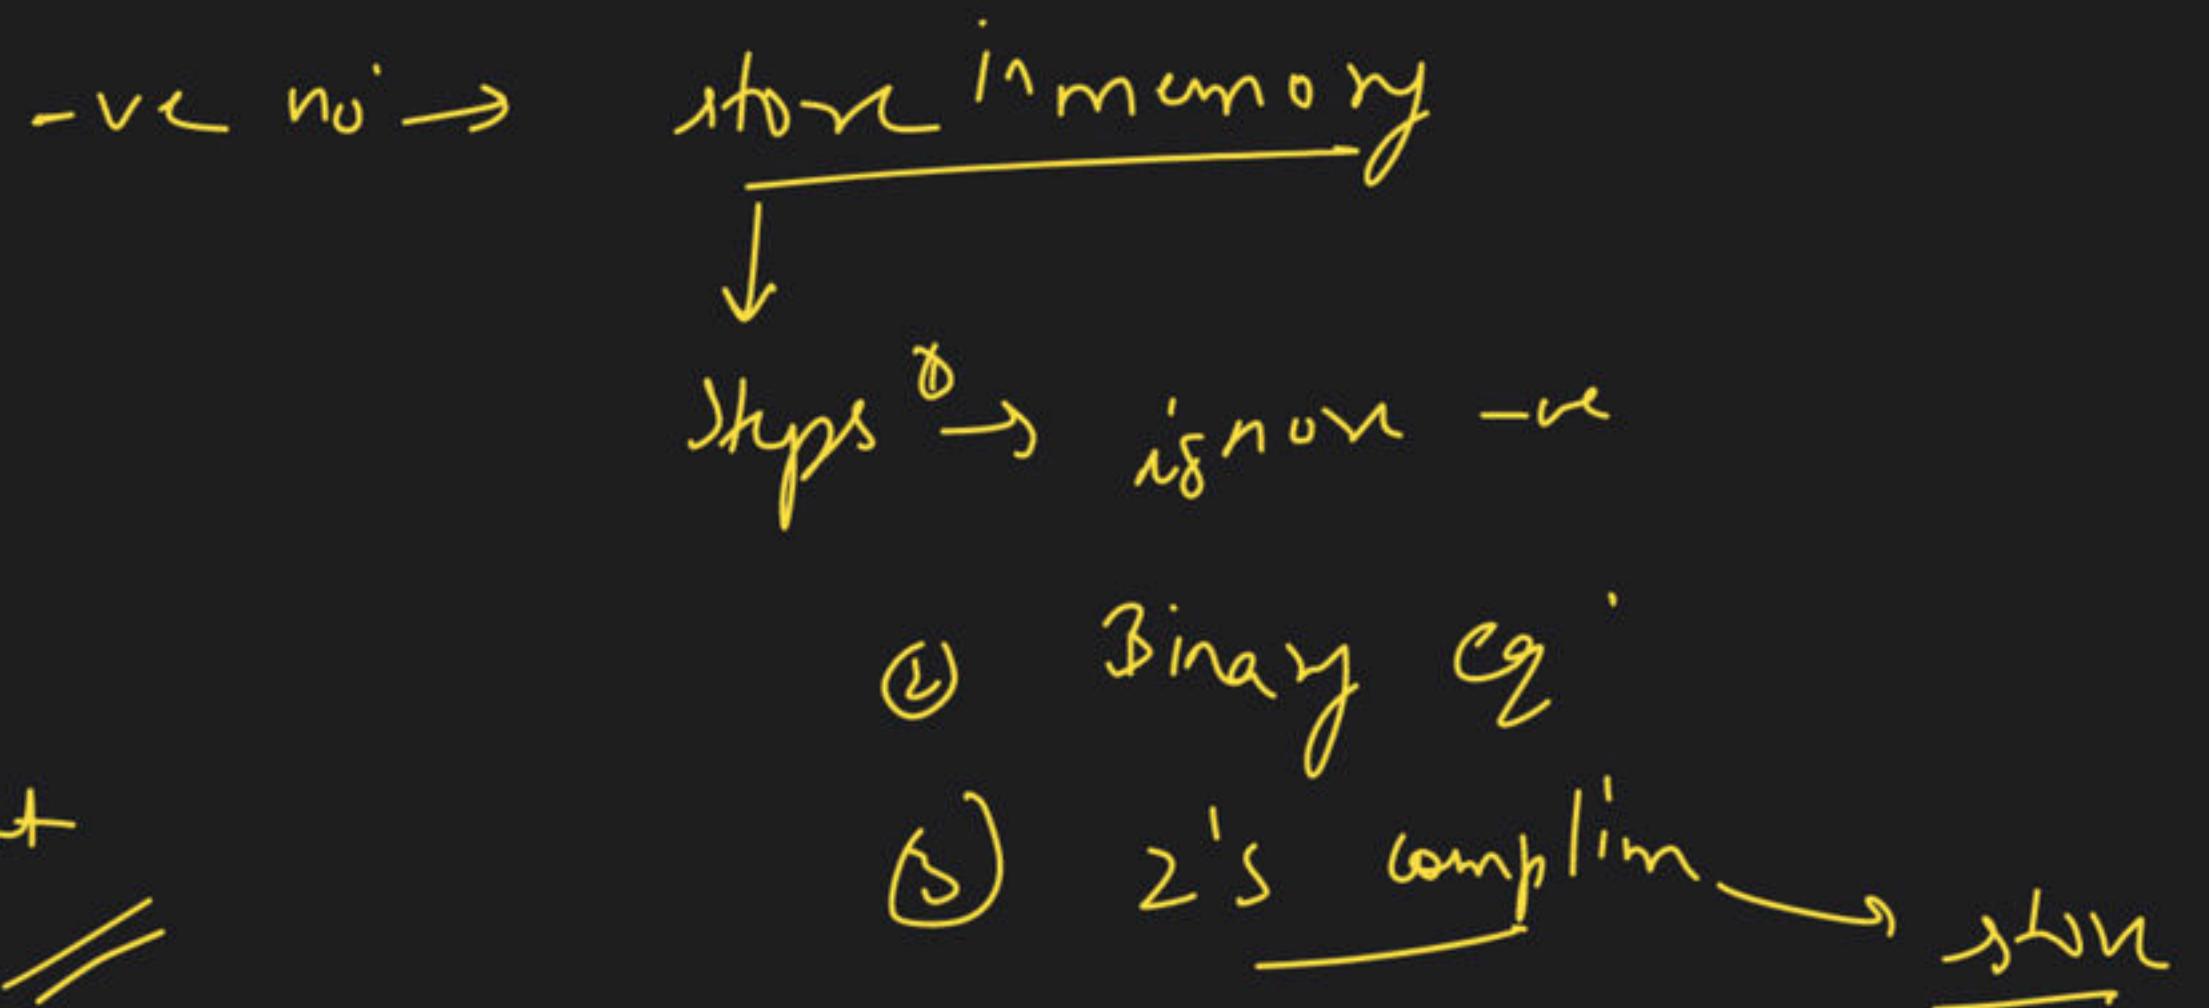 -ve no. → store in memory
↓
Steps ① → ignore -ve
② Binary eq.
③ 2's complim → store